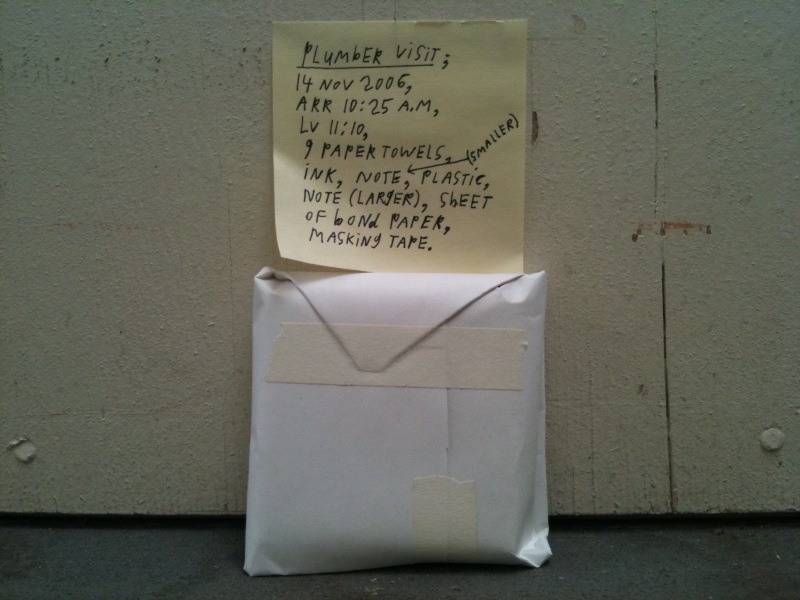 PLUMbER VISIT;
14 NOV 2006,
ARR 10:25 A.M,
LV 11:10,
9 PAPER TOWELS,
(SMALLER)
INK, NOTE, PLASTIC,
NOTE (LARGER), ShEET
OF bONd PAPER,
MASKING TAPE.